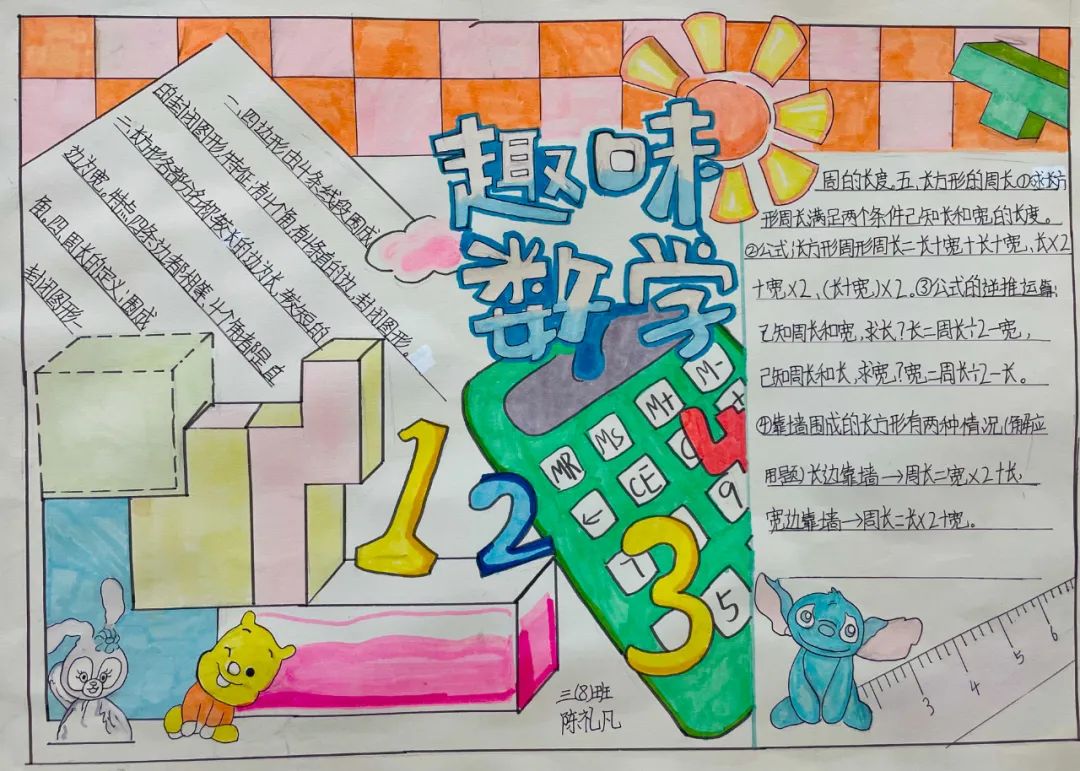 趣味
数学
二、四边形：由4条线段围成
的封闭图形，特征：有4个角，有4条直的边，封闭图形。
三、长方形各部分名称：较长的边为长，较短的
边为宽。特点：四条边都相等，4个角都是直
角。四、周长的定义：围成
封闭图形一
周的长度。五、长方形的周长①求长方
形周长满足两个条件：已知长和宽的长度。
②公式：长方形周形周长=长+宽+长+宽，长×2
+宽×2，(长+宽)×2。③公式的逆推运算：
已知周长和宽，求长？长=周长÷2-宽，
已知周长和长，求宽？宽=周长÷2-长。
④靠墙围成的长方形有两种情况，(解应
用题)长边靠墙→周长=宽×2+长，
宽边靠墙→周长=长×2+宽。
MR MS M+ M-
← CE C
7 9
5
1 2 3 4
3 4 5 6
三(8)班
陈礼凡